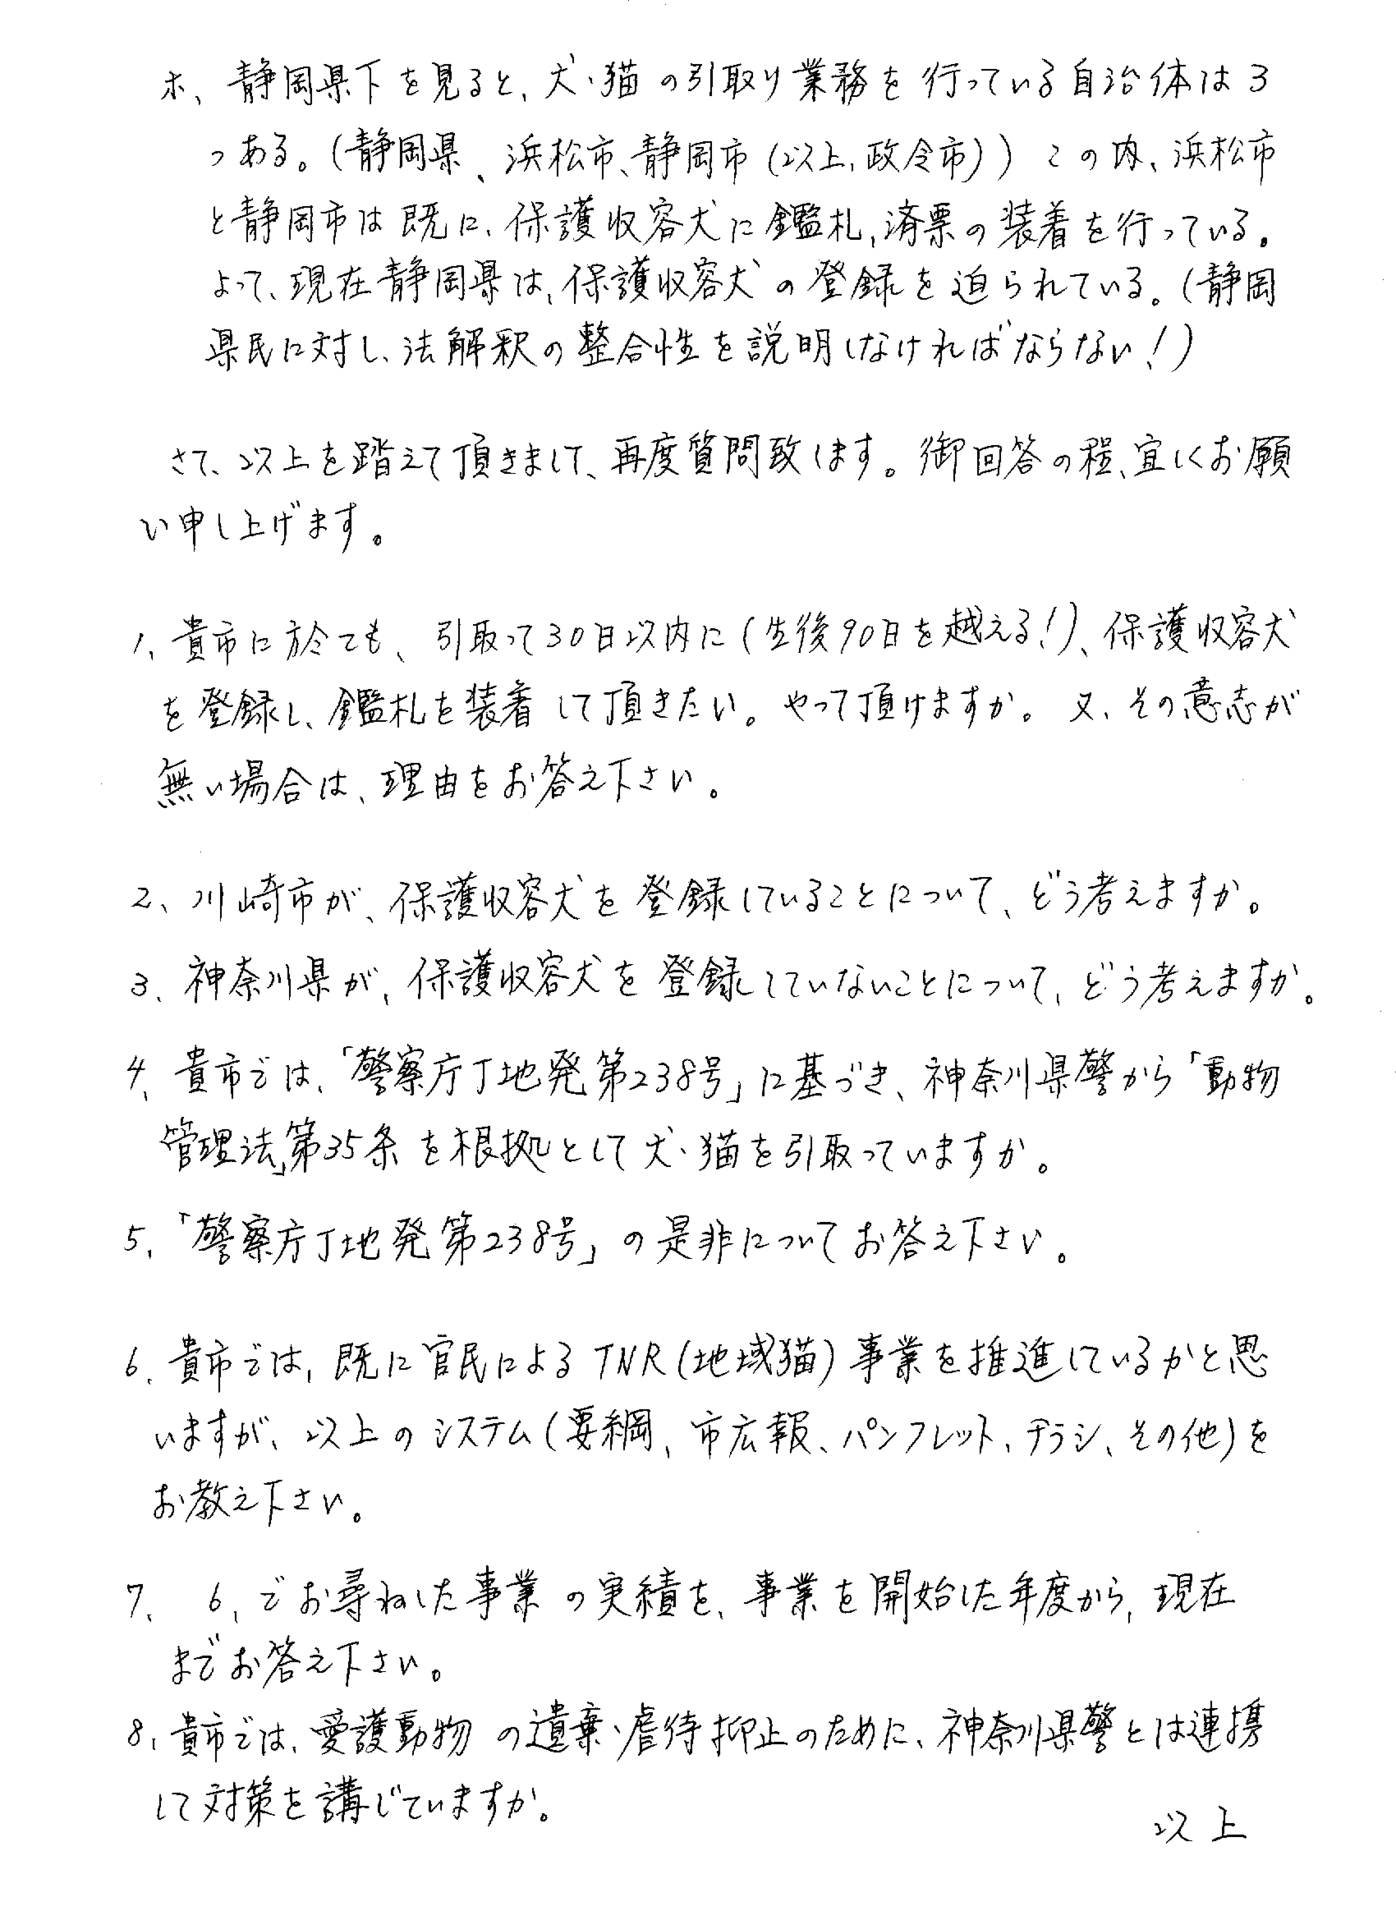 ホ、静岡県下を見ると、犬・猫の引取り業務を行っている自治体は3
つある。(静岡県、浜松市、静岡市(以上,政令市))この内、浜松市
と静岡市は既に、保護収容犬に鑑札,済票の装着を行っている。
よって、現在静岡県は,保護収容犬の登録を迫られている。(静岡
県民に対し、法解釈の整合性を説明しなければならない!)
さて、以上を踏えて頂きまして、再度質問致します。御回答の程、宜しくお願
い申し上げます。
1、貴市に於ても、引取って30日以内に(生後90日を越える!)、保護収容犬
を登録し、鑑札を装着して頂きたい。やって頂けますか。又、その意志が
無い場合は、理由をお答え下さい。
2、川崎市が、保護収容犬を登録していることについて、どう考えますか。
3、神奈川県が、保護収容犬を登録していないことについて、どう考えますか。
4、貴市では、「警察庁丁地発第238号」に基づき、神奈川県警から「動物
管理法」第35条を根拠として犬・猫を引取っていますか。
5、「警察庁丁地発第238号」の是非についてお答え下さい。
6、貴市では,既に官民によるTNR(地域猫)事業を推進しているかと思
いますが、以上のシステム(要綱、市広報、パンフレット、チラシ、その他)を
お教え下さい。
7、6,でお尋ねした事業の実績を、事業を開始した年度から,現在
までお答え下さい。
8,貴市では、愛護動物の遺棄・虐待抑止のために、神奈川県警とは連携
して対策を講じていますか。
以上